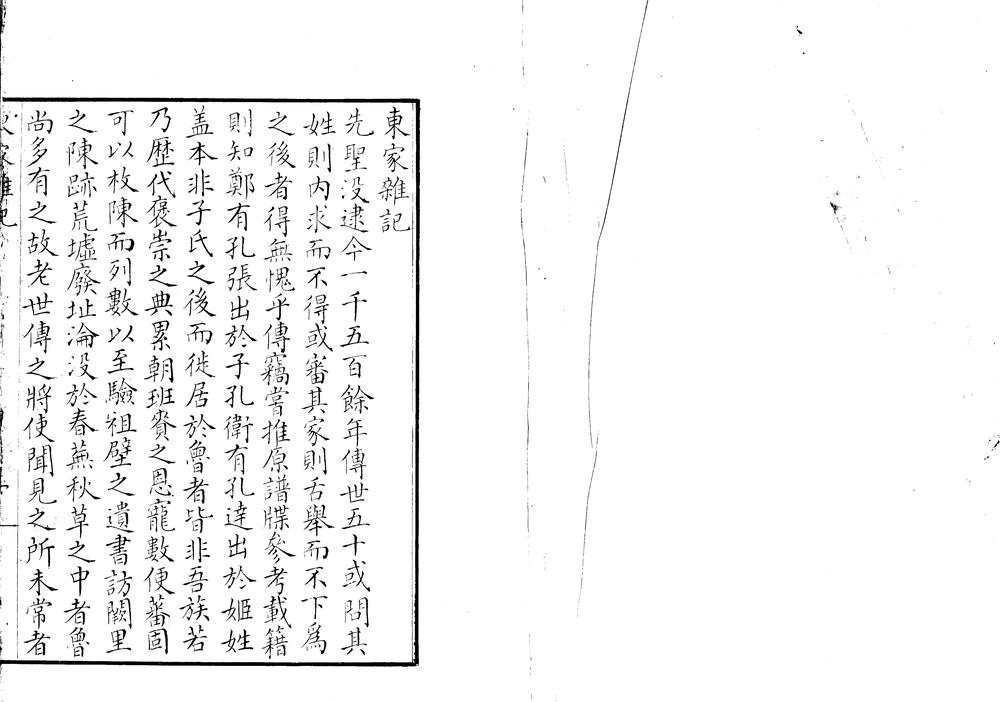 東家雜記
先聖没逮今一千五百餘年傳世五十或問其
姓則内求而不得或審其家則舌舉而不下爲
之後者得無愧乎傳竊嘗推原譜牒參考載籍
則知鄭有孔張出於子孔衛有孔達出於姬姓
盖本非子氏之後而徙居於魯者皆非吾族若
乃歷代褒崇之典累朝班賚之恩寵數便蕃固
可以枚陳而列數以至驗祖壁之遺書訪闕里
之陳跡荒墟廢址淪没於春蕪秋草之中者魯
尚多有之故老世傳之將使聞見之所未常者
家雜記